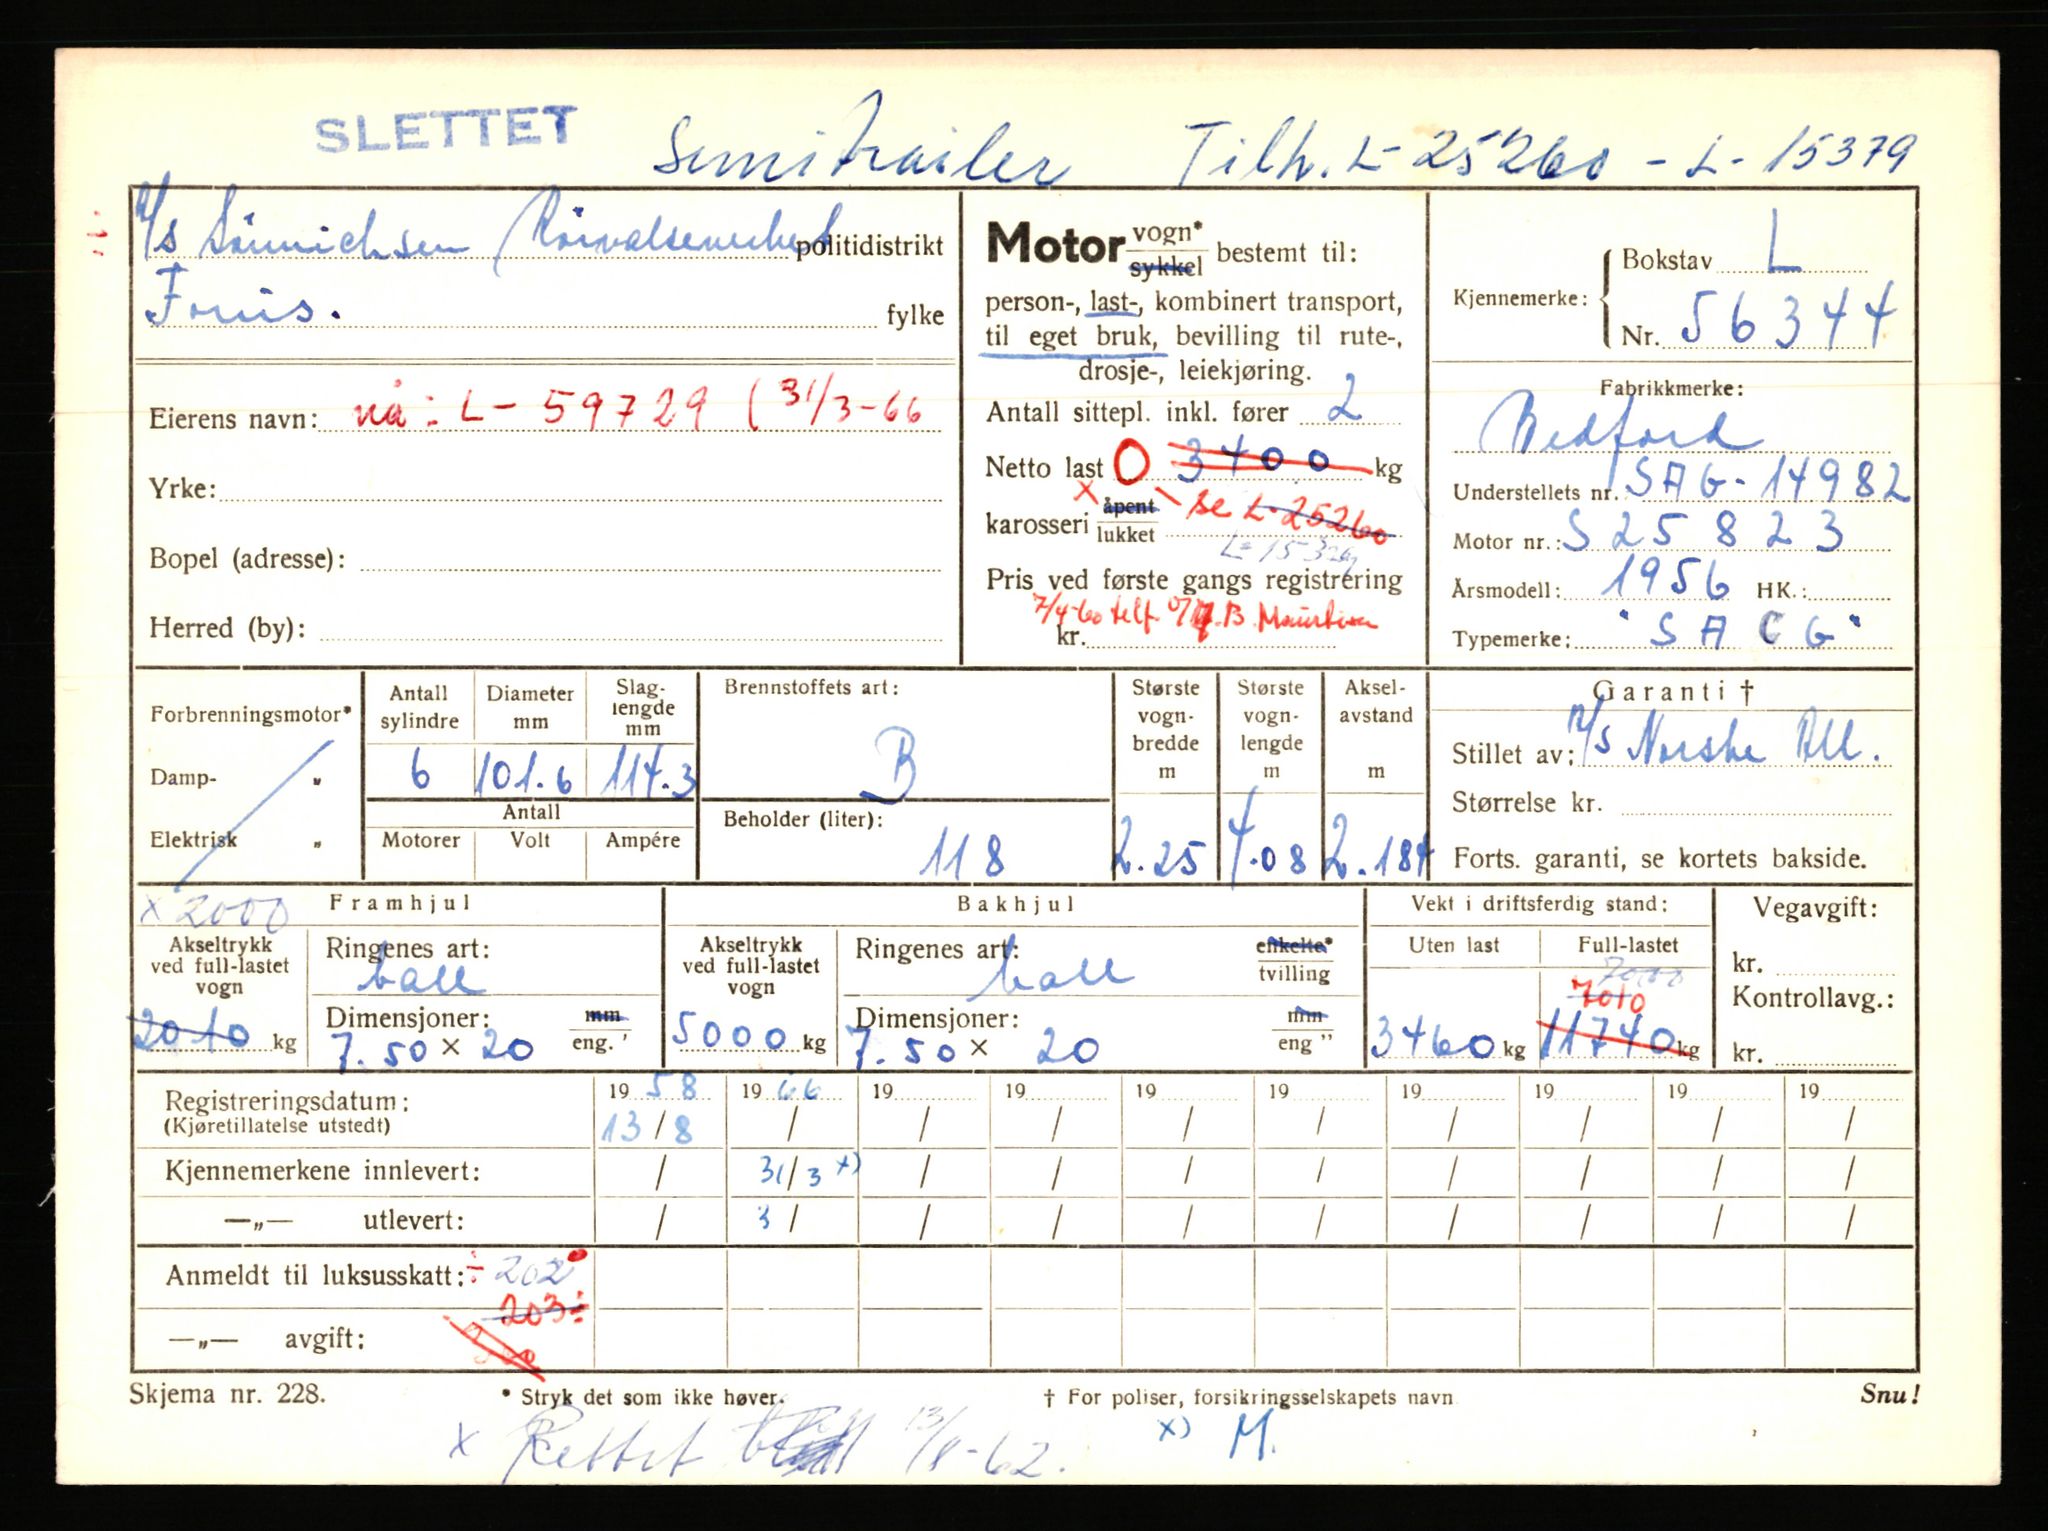 SLETTET Semitrailer Tilh. L-25260 - L-15379
A/S Sönnichsen Rörvalseverket politidistrikt
Forus. fylke
Eierens navn: nå: L-59729 (31/3-66
Yrke:
Bopel (adresse):
Herred (by):
Motor vogn* sykkel bestemt til:
person-, last-, kombinert transport,
til eget bruk, bevilling til rute-,
drosje-, leiekjøring.
Antall sittepl. inkl. fører 2
Netto last 0 3400 kg
x
karosseri åpent lukket - se L-25260
Pris ved første gangs registrering
7/4-60 telf.
kr.
Kjennemerke: Bokstav L
Nr. 56344
Fabrikkmerke:
Bedford
Understellets nr. SAG-14982
Motor nr.: S 25823
Årsmodell: 1956 HK.:
Typemerke: "SACG"
Forbrenningsmotor*
Damp- „
Elektrisk „
Antall sylindre 6
Diameter mm 101.6
Slaglengde mm 114.3
Antall
Motorer Volt Ampére
Brennstoffets art:
B
Beholder (liter):
118
Største vognbredde m 2.25
Største vognlengde m 4.08
Akselavstand m 2.184
Garanti †
Stillet av: A/S Norske All.
Størrelse kr.
Forts. garanti, se kortets bakside.
x 2000 Framhjul
Akseltrykk ved full-lastet vogn
2010 kg
Ringenes art:
ball
Dimensjoner: mm eng. '
7.50 × 20
Bakhjul
Akseltrykk ved full-lastet vogn
5000 kg
Ringenes art: enkelte* tvilling
ball
Dimensjoner: mm eng "
7.50 × 20
Vekt i driftsferdig stand:
Uten last Full-lastet
7000
7010
3460 kg 11740 kg
Vegavgift:
kr.
Kontrollavg.:
kr.
Registreringsdatum: 19 58 19 66 19 19 19 19 19 19 19 19
(Kjøretillatelse utstedt) 13/8 / / / / / / / / /
Kjennemerkene innlevert: / 31/3 x) / / / / / / / /
—„— utlevert: / 3/ / / / / / / / /
Anmeldt til luksusskatt: ÷ 202
203 ÷
—„— avgift:
Skjema nr. 228. * Stryk det som ikke høver. † For poliser, forsikringsselskapets navn Snu!
x Rettet 13/8-62. x) M.